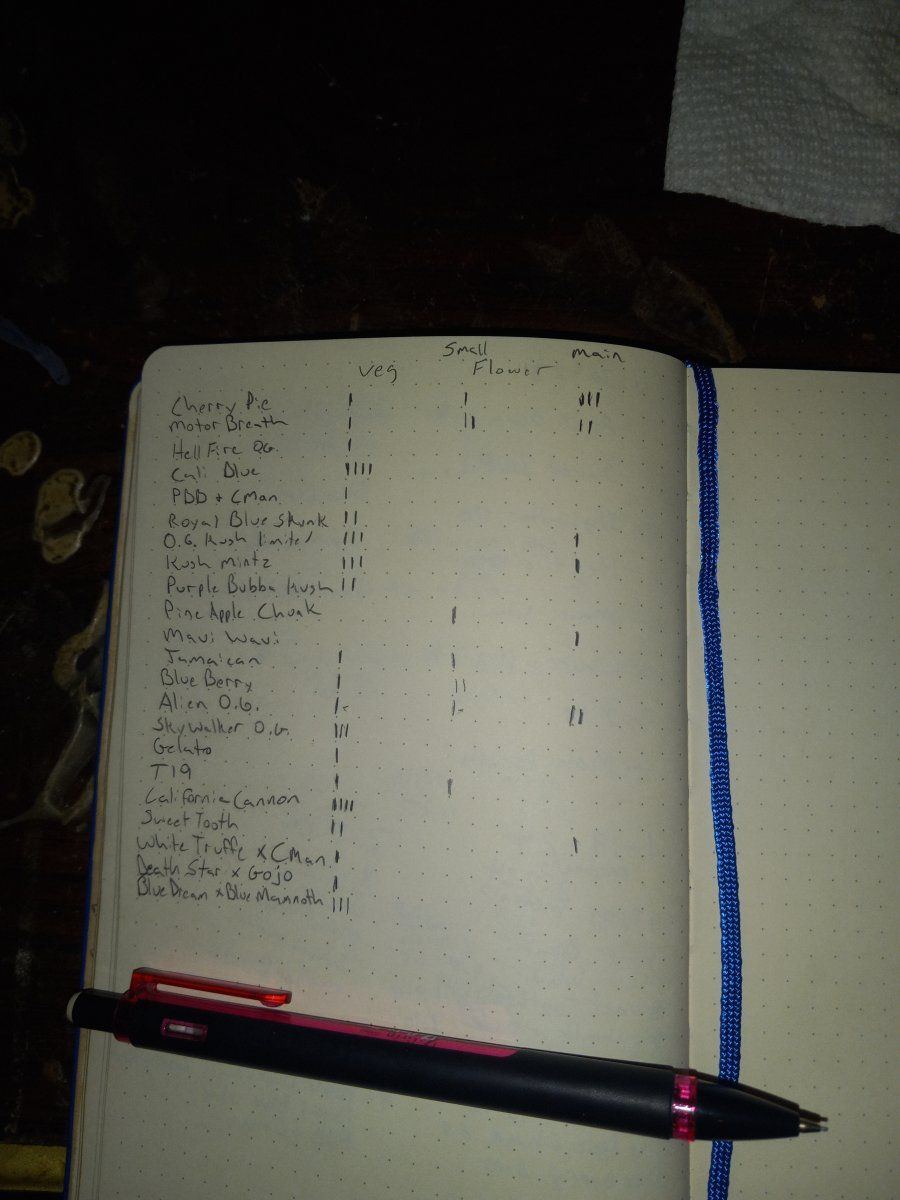 Small main
veg Flower
Cherry Pie I I IIII
Motor Breath I II II
Hell Fire OG. I
Cali Blue IIII
PDD + CMan I
Royal Blue Skunk II
O.G. Kush limited III I
Kush mintz III I
Purple Bubba Kush II
Pine Apple Chunk I
Maui Waui I
Jamaican I I
Blue Berry I II
Alien O.G. I- I- II
Skywalker O.G. III
Gelato I
T19 I I
California Cannon IIII
Sweet Tooth II
White Truffe x CMan I I
Death Star x Gojo I
Blue Dream x Blue Mammoth III